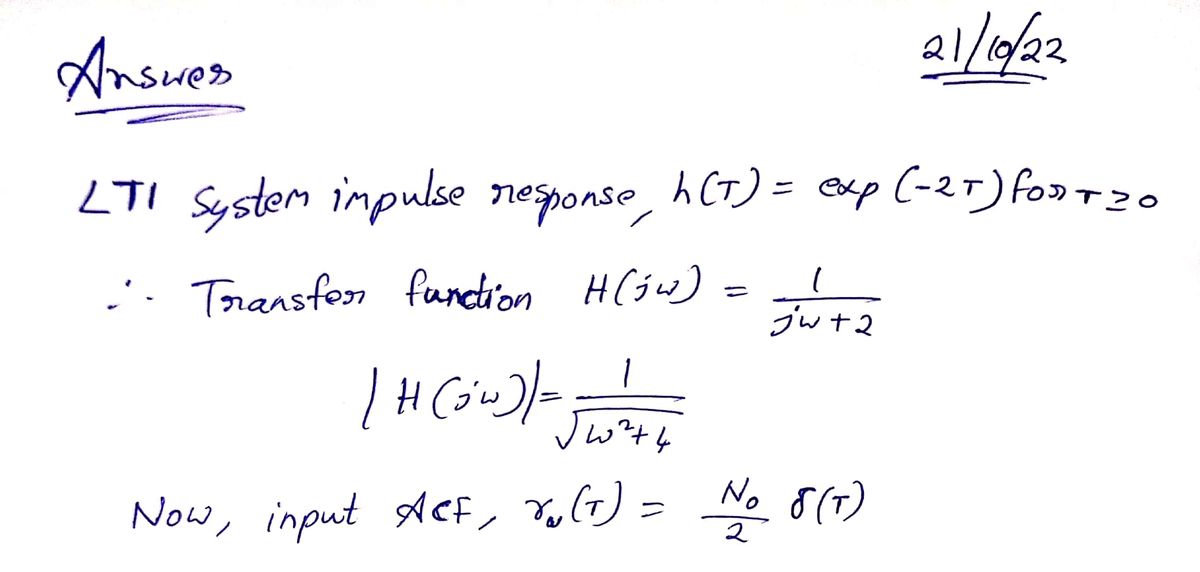 Answer 21/10/22
LTI System impulse response, h(τ) = exp (-2τ) for τ ≥ 0
∴ Transfer function H(jω) = 1/(jω + 2)
|H(jω)| = 1/√(ω² + 4)
Now, input ACF, r(τ) = N₀/2 δ(τ)